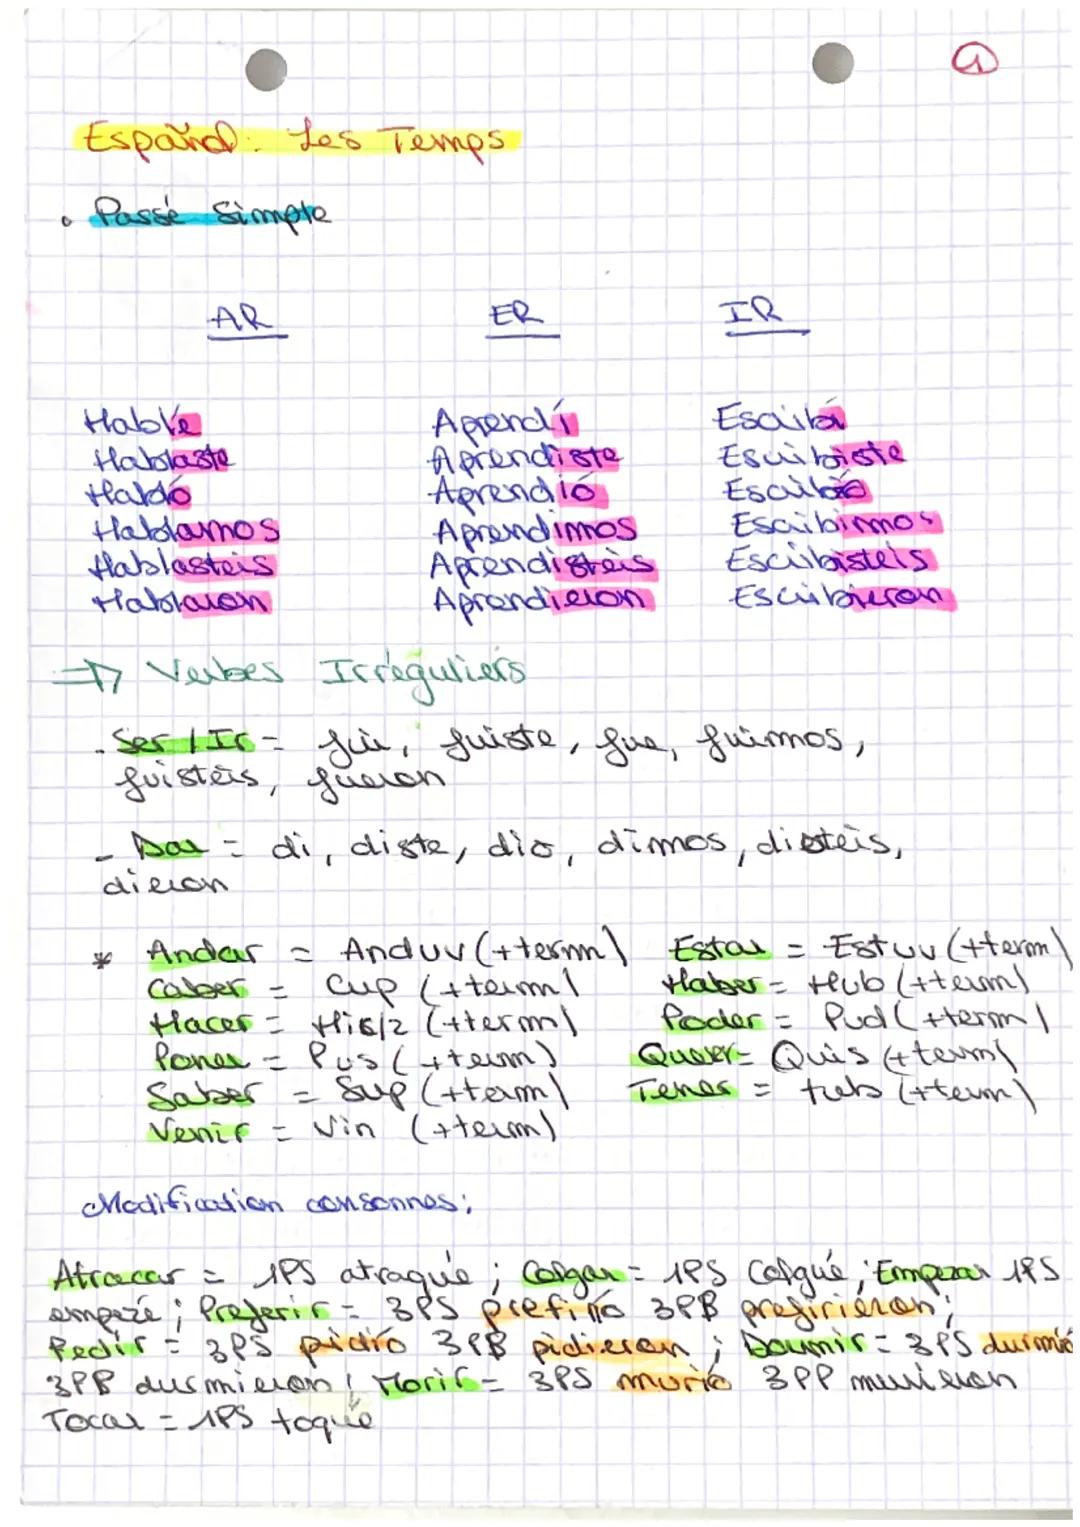 1
Español: Les Temps
• Passé Simple
AR ER IR
Hablé Aprendí Escribí
Hablaste Aprendiste Escribiste
Habló Aprendió Escribió
Hablamos Aprendimos Escribimos
Hablasteis Aprendisteis Escribisteis
Hablaron Aprendieron Escribieron
=> Verbes Irréguliers
- Ser / Ir = fui, fuiste, fue, fuimos,
fuisteis, fueron
- Dar = di, diste, dio, dimos, disteis,
dieron
* Andar = Anduv (+term) Estar = Estuv (+term)
Caber = Cup (+term) Haber = Hub (+term)
Hacer = His/z (+term) Poder = Pud (+term)
Poner = Pus (+term) Querer = Quis (+term)
Saber = Sup (+term) Tener = tub (+term)
Venir = Vin (+term)
Modification consonnes:
Atracar = 1PS atraqué ; Colgar = 1PS Colgué ; Empezar 1PS
empezé ; Preferir = 3PS prefirió 3PP prefiriéron ;
Pedir = 3PS pidió 3PP pidieron ; Dormir = 3PS durmió
3PP durmieron ; Morir = 3PS murió 3PP murieron
Tocar = 1PS toqué